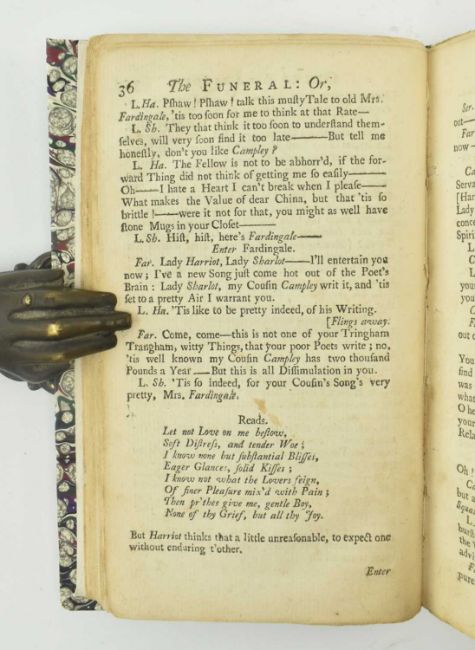 36 The FUNERAL: Or,
L. Ha. Pſhaw! Pſhaw! talk this muſty Tale to old Mrs.
Fardingale, 'tis too ſoon for me to think at that Rate—
L. Sh. They that think it too ſoon to underſtand them-
ſelves, will very ſoon find it too late———But tell me
honeſtly, don't you like Campley?
L. Ha. The Fellow is not to be abhorr'd, if the for-
ward Thing did not think of getting me ſo eaſily———
Oh——I hate a Heart I can't break when I pleaſe——
What makes the Value of dear China, but that 'tis ſo
brittle!——were it not for that, you might as well have
ſtone Mugs in your Cloſet——
L. Sh. Hiſt, hiſt, here's Fardingale——
Enter Fardingale.
Far. Lady Harriot, Lady Sharlot——I'll entertain you
now; I've a new Song juſt come hot out of the Poet's
Brain: Lady Sharlot, my Couſin Campley writ it, and 'tis
ſet to a pretty Air I warrant you.
L. Ha. 'Tis like to be pretty indeed, of his Writing.
[Flings away.
Far. Come, come—this is not one of your Tringham
Trangham, witty Things, that your poor Poets write; no,
'tis well known my Couſin Campley has two thouſand
Pounds a Year——But this is all Diſſimulation in you.
L. Sh. 'Tis ſo indeed, for your Couſin's Song's very
pretty, Mrs. Fardingale.
Reads.
Let not Love on me beſtow,
Soft Diſtreſs, and tender Woe;
I know none but ſubſtantial Bliſſes,
Eager Glances, ſolid Kiſſes;
I know not what the Lovers feign,
Of finer Pleaſure mix'd with Pain;
Then pr'thee give me, gentle Boy,
None of thy Grief, but all thy Joy.
But Harriot thinks that a little unreaſonable, to expect one
without enduring t'other.
Enter